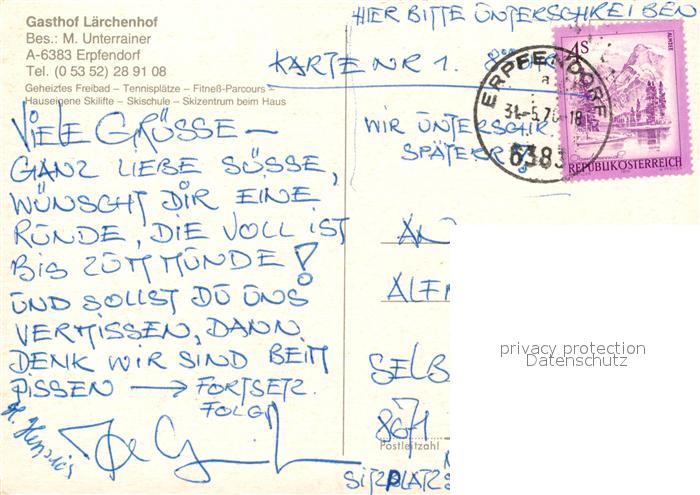 Gasthof Lärchenhof
Bes.: M. Unterrainer
A-6383 Erpfendorf
Tel. (0 53 52) 28 91 08
Geheiztes Freibad – Tennisplätze – Fitneß-Parcours –
Hauseigene Skilifte – Skischule – Skizentrum beim Haus
HIER BITTE UNTERSCHREIBEN
KARTE NR 1.
VIELE GRÜSSE –
GANZ LIEBE SÜSSE,
WÜNSCHT DIR EINE
RUNDE, DIE VOLL IST
BIS ZUM MUNDE!
UND SOLLST DU UNS
VERMISSEN, DANN
DENK WIR SIND BEIM
PISSEN → FORTSETZ.
FOLGT
WIR UNTERSCHR.
SPÄTER!
4S
ALMSEE
ERPFENDORF
a
31.-5.78-18
6383
REPUBLIK ÖSTERREICH
AN
ALE
SELB
8671
Postleitzahl
SITZPLATZ
privacy protection
Datenschutz